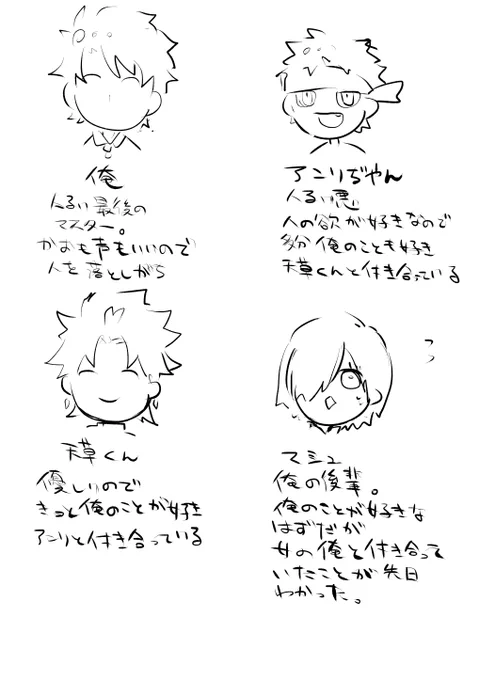 俺
人るい最後の
マスター。
かおも声もいいので
人を落としがち
アンリぢゃん
人るい悪
人の欲が好きなので
多分俺のことも好き
天草くんと付き合っている
天草くん
優しいので
きっと俺のことが好き
アンリと付き合っている
マシュ
俺の後輩。
俺のことが好きな
はずだが
女の俺と付き合って
いたことが先日
わかった。